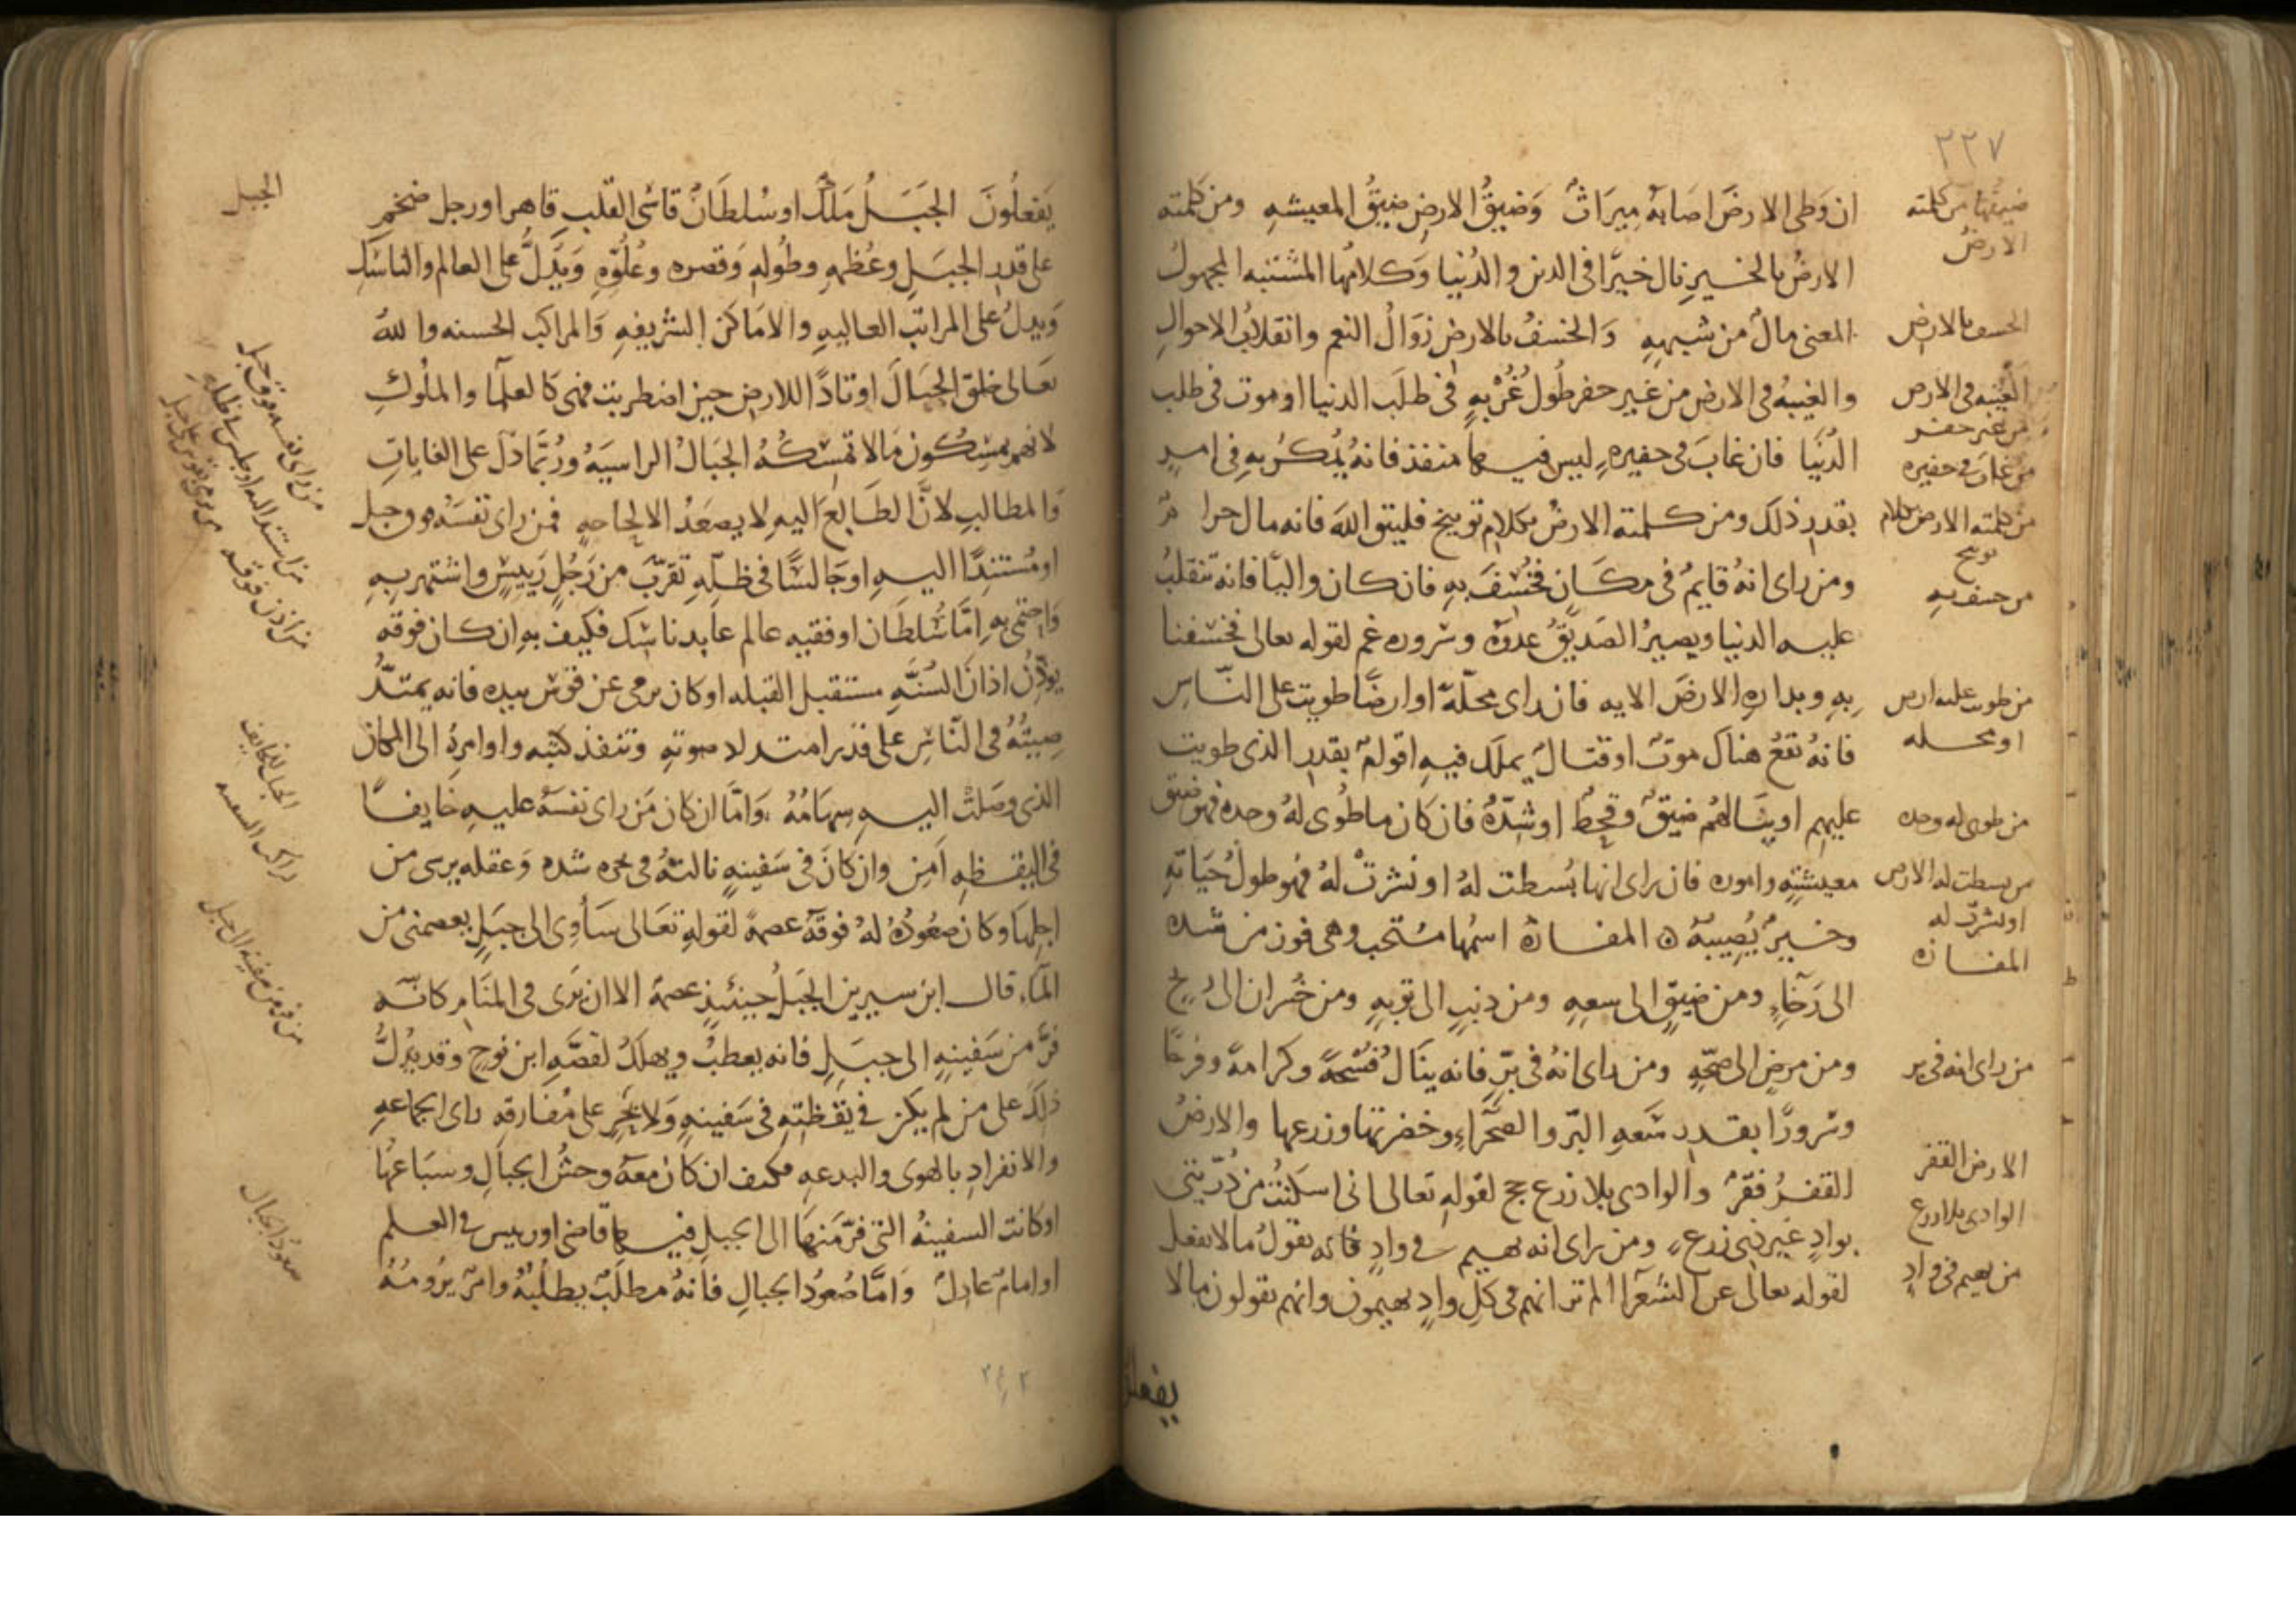 ٢٢٧
ان وطى الارض اصابه ميراث وضيق الارض ضيق المعيشه ومن كلمته
الارض بالخير نال خيرا فى الدين والدنيا وكلامها المشتبه المجهول
المعنى مال من شبهه والخسف بالارض زوال النعم وانقلاب الاحوال
والغيبه فى الارض من غير حفر طول غربه فى طلب الدنيا او موت فى طلب
الدنيا فان غاب فى حفيره ليس فيها منفذ فانه يمكر به فى امر
بقدر ذلك ومن كلمته الارض بكلام توبيخ فليتق الله فانه مال حرام
ومن راى انه قايم فى مكان فخسف به فان كان واليا فانه تنقلب
عليه الدنيا ويصير الصديق عدوه وسروره غم لقوله تعالى فخسفنا
به وبداره الارض الايه فان راى محلة او ارضا طويت على الناس
فانه يقع هناك موت او قتال يهلك فيه اقوام بقدر الذى طويت
عليهم او ينالهم ضيق وقحط او شدة فان كان ما طوى له وحده فهو ضيق
معيشته واموره فان راى انها بسطت له او نشرت له فهو طول حياته
وخير يصيبه المفازة اسمها مستحب وهى فوز من شده
الى رخاء ومن ضيق الى سعه ومن ذنب الى توبه ومن خسران الى ربح
ومن مرض الى صحه ومن راى انه فى بر فانه ينال فسحة وكرامة وفرحا
وسرورا بقدر سعه البر والصحراء وخضرتها وزرعها والارض
القفر فقر والوادى بلا زرع حج لقوله تعالى انى اسكنت من ذريتى
بواد غير ذى زرع ومن راى انه يهيم فى واد فانه يقول ما لا يفعل
لقوله تعالى عن الشعرا الم تر انهم فى كل واد يهيمون وانهم يقولون ما لا
يفعلون
ضيقها من كلمته
الارض
الخسف بالارض
الغيبه فى الارض
من غير حفر
من غاب فى حفيره
من كلمته الارض بكلام
توبيخ
من خسف به
من طويت عليه ارض
او محله
من طوى له وحده
من بسطت له الارض
او نشرت له
المفازه
من راى انه فى بر
الارض القفر
الوادى بلا زرع
من يهيم فى واد
يفعلون الجبل ملك او سلطان قاسى القلب قاهر او رجل ضخم
على قدر الجبل وعظمه وطوله وقصره وعلوه ويدل على العالم والناسك
ويدل على المراتب العاليه والاماكن الشريفه والمراكب الحسنه والله
تعالى خلق الجبال اوتادا للارض حين اضطربت فهى كالعلما والملوك
لانهم يمسكون مالا تمسكه الجبال الراسيه وربما دل على الغايات
والمطالب لان الطالع اليه لا يصعد الا لحاجه فمن راى نفسه فوق جبل
او مستندا اليه او جالسا فى ظله تقرب من رجل رييس واشتهر به
واحتمى به اما سلطان او فقيه عالم عابد ناسك فكيف به ان كان فوقه
يوذن اذان السنه مستقبل القبله او كان يرمى عن قوس بيده فانه يمتد
صيته فى الناس على قدر امتداد صوته وتنفذ كتبه واوامره الى المكان
الذى وصلت اليه سهامه واما ان كان من راى نفسه عليه خايفا
فى اليقظه امن وان كان فى سفينه نالته فى بحره شده وعقله يرسى من
اجلها وكان صعوده له فوقه عصمة لقوله تعالى ساوى الى جبل يعصمنى من
الماء قال ابن سيرين الجبل حينئذ عصمة الا ان يرى فى المنام كانه
فر من سفينه الى جبل فانه يعطب ويهلك لقصه ابن نوح وقد يدل
ذلك على من لم يكن فى يقظته فى سفينه ولا بحر على مفارقه راى الجماعه
والانفراد بالهوى والبدعه فكيف ان كان معه وحش الجبال وسباعها
او كانت السفينه التى فر منها الى الجبل فيها قاضى او رييس فى العلم
او امام عادل واما صعود الجبال فانه مطلب يطلبه وامر يرومه
الجبل
من راى نفسه فوق جبل
من استند اليه او جلس فى ظله
من اذن فوقه
الجبل للخايف
راكب السفينه
من فر من سفينه الى جبل
صعود الجبال
٢٤٢